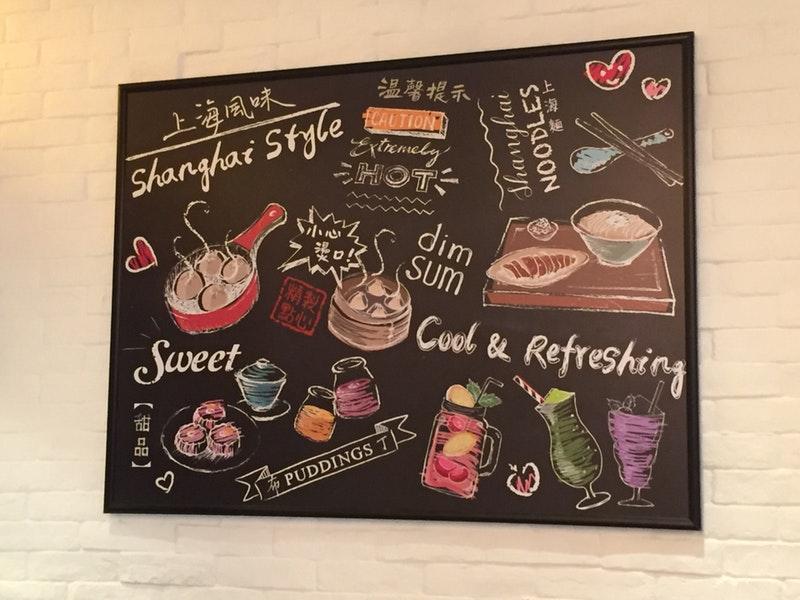 上海風味
Shanghai Style
溫馨提示
CAUTION
Extremely
HOT
Shanghai
NOODLES
上海麵
小心
燙口!
dim
SUM
精製
點心
Cool & Refreshing
Sweet
【甜品】
布 PUDDINGS 丁